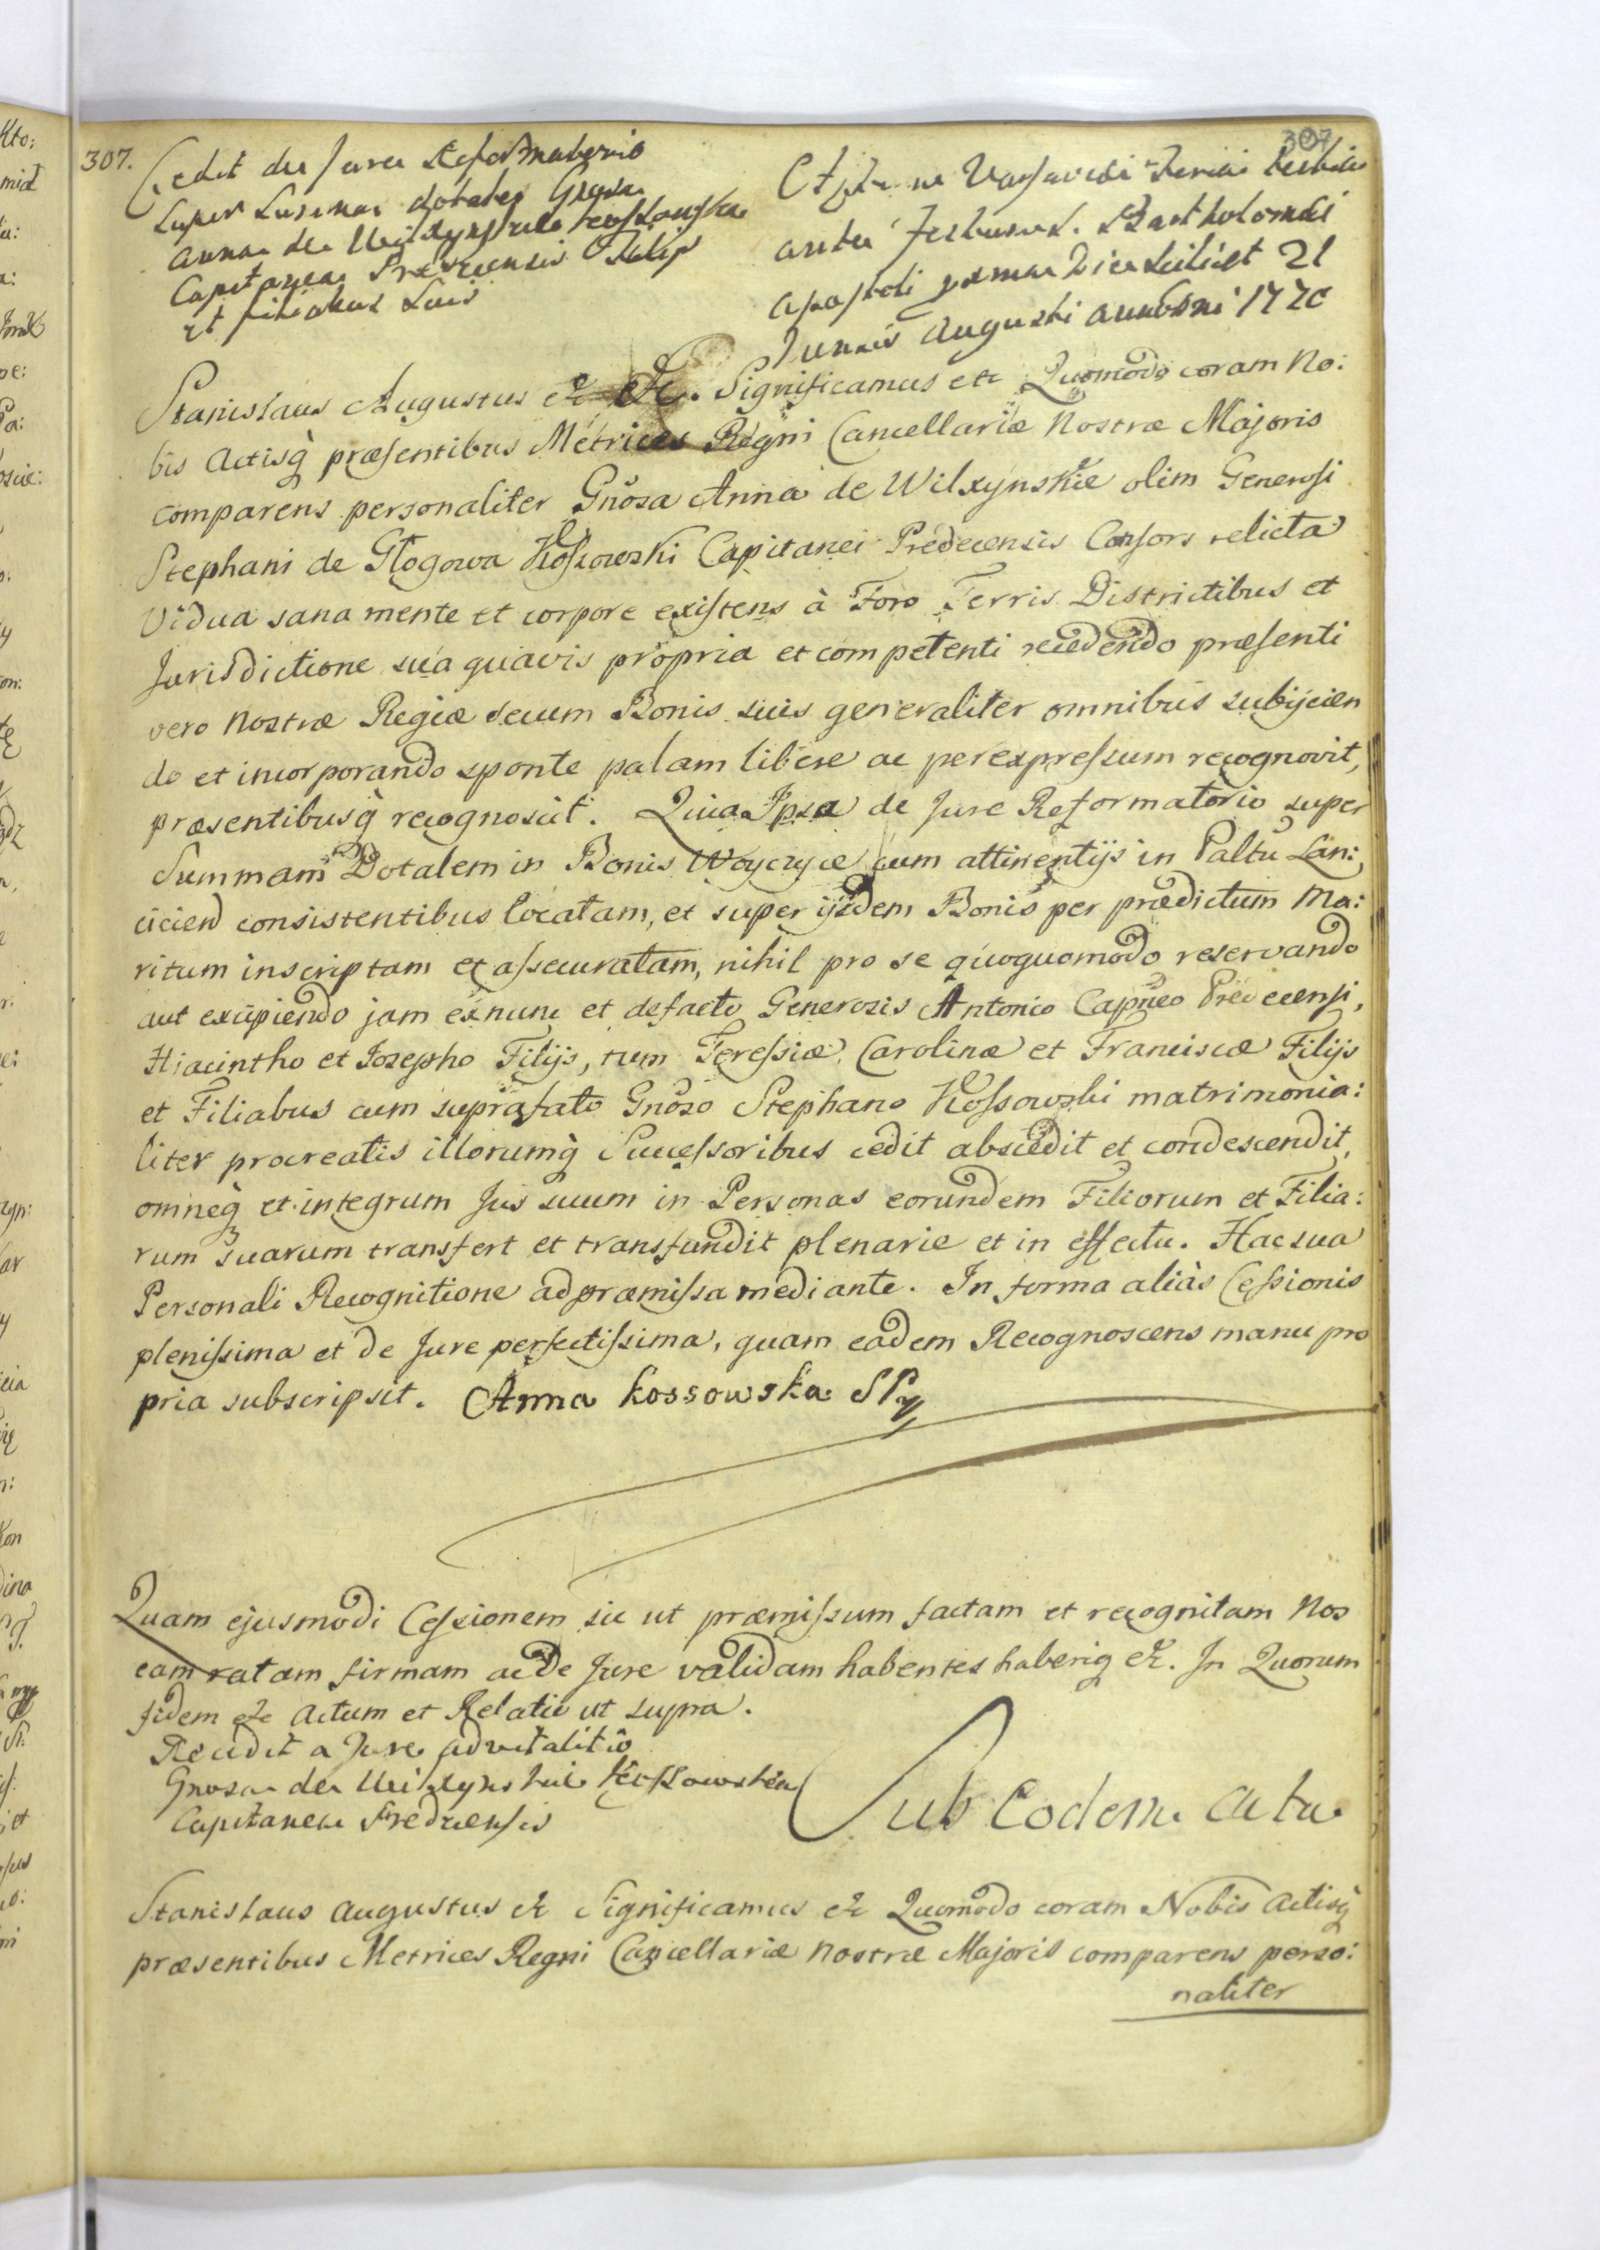 307.
307
Cedit de Jure Reformatorio
super Summa dotales Gnosa
Anna de Wilxynskie Kossowska
Capitanea Predecensis Filijs
et filiabus suis
Actum Varsaviae Feria tertia
ante Festum S. Bartholomaei
Apostoli proxma Die scilicet 21
Mensis Augusti anno Dni 1770
Stanislaus Augustus & &c. Significamus etc Quomodo coram No:
bis Actisq̀ præsentibus Metrices Regni Cancellariæ Nostræ Majoris
comparens personaliter Gnosa Anna de Wilxynskie olim Generosi
Stephani de Głogowa Kossowski Capitanei Predecensis Consors relicta
Vidua sana mente et corpore existens à Foro Terris Districtibus et
Jurisdictione sua quavis propria et competenti recedendo præsenti
vero Nostræ Regiæ secum Bonis suis generaliter omnibus subijcien
do et incorporando sponte palam libere ac per expressum recognovit,
præsentibusq̀ recognoscit. Quia Ipsa de Jure Reformatorio super
Summam Dotalem in Bonis Woyczyce cum attinentijs in Paltu Lan:
ciciend consistentibus locatam, et super ijsdem Bonis per prædictum Ma:
ritum inscriptam et assecuratam, nihil pro se quoquomodo reservando
aut excipiendo jam exnunc et defacto Generosis Antonio Capneo Predecensi,
Hiacintho et Josepho Filijs, tum Teressiæ, Carolinæ et Franciscæ Filijs
et Filiabus cum suprafato Gnoso Stephano Kossowski matrimonia:
liter procreatis illorumq̀ Successoribus cedit abscedit et condescendit,
omneq̀ et integrum Jus suum in Personas eorundem Filiorum et Filia:
rum suarum transfert et transfundit plenarie et in effectu. Hac sua
Personali Recognitione ad præmissa mediante. In forma aliàs Cessionis
plenissima et de Jure perfectissima, quam eadem Recognoscens manu pro
pria subscripsit. Anna Kossowska SP
Quam ejusmodi Cessionem sic ut præmissum factam et recognitam Nos
eam ratam firmam ac de Jure validam habentes haberiq &. In Quorum
fidem &c Actum et Relatio ut supra.
Recedit a Jure advitalitio
Gnosa de Wilxynskie Kossowska
Capitanea Predecensis
Sub Eodem Actu
Stanislaus Augustus & Significamus & Quomodo coram Nobis Actisq̀
præsentibus Metrices Regni Cancellariæ Nostræ Majoris comparens perso:
naliter